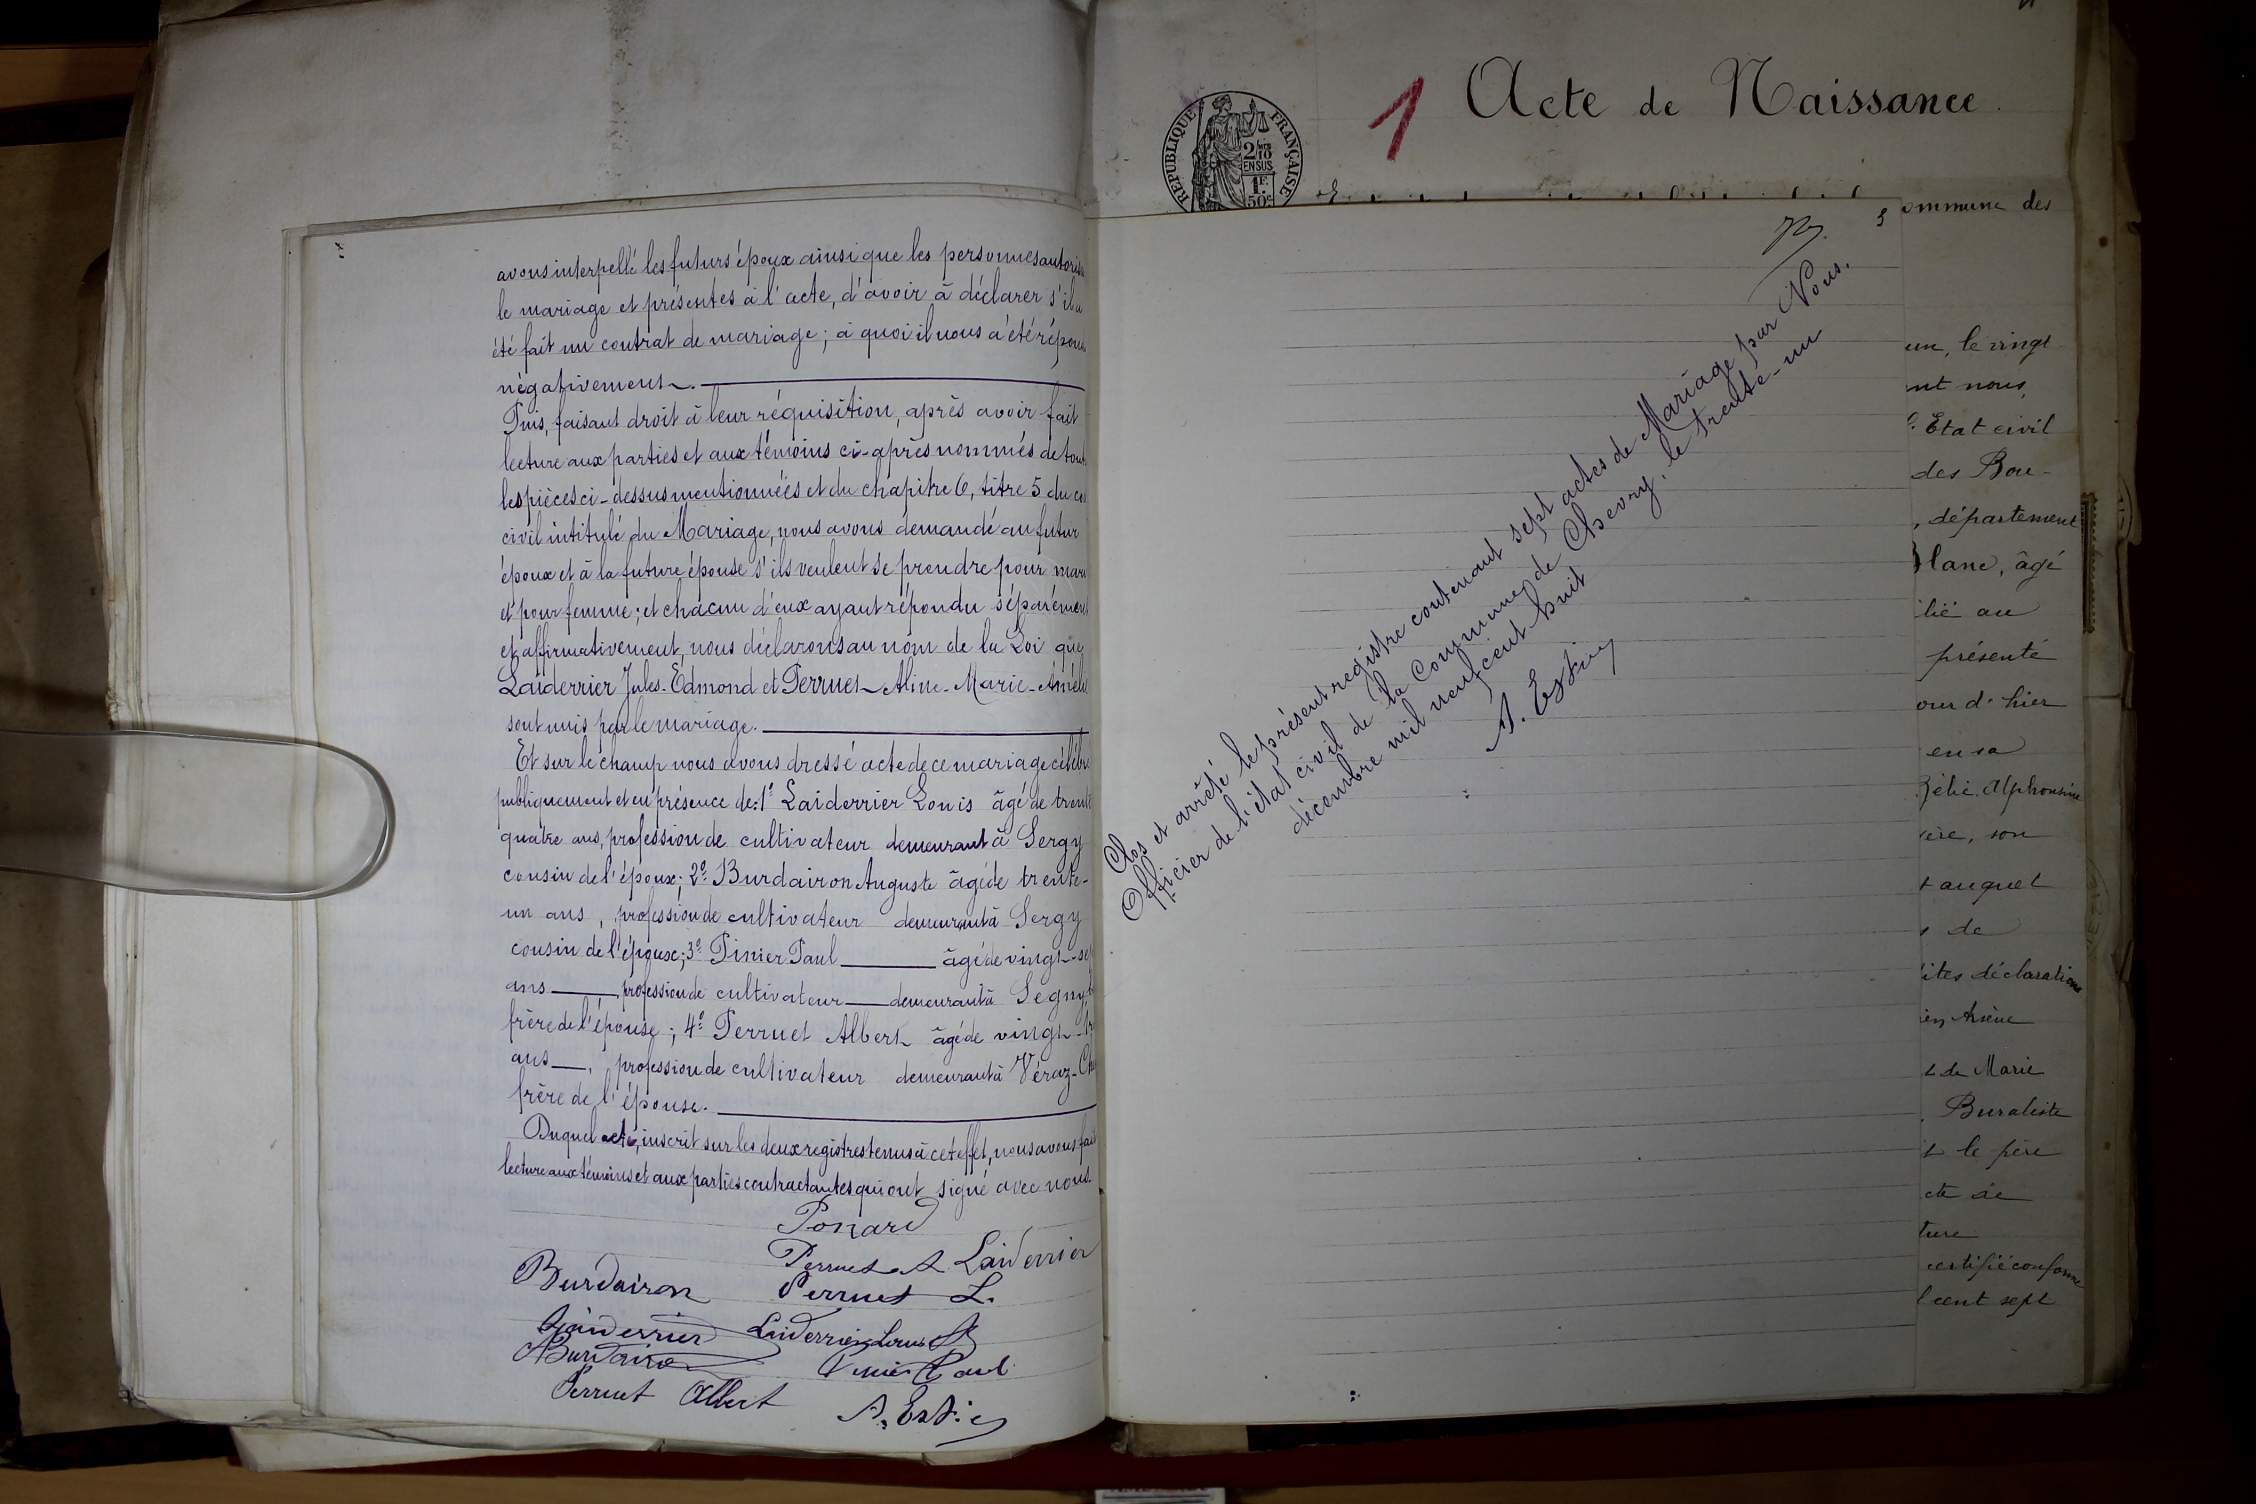 avons interpellé les futurs époux ainsi que les personnes autoris
le mariage et présentes à l'acte, d'avoir à déclarer s'il a
été fait un contrat de mariage ; à quoi il nous a été répon
négativement.
Puis, faisant droit à leur réquisition, après avoir fait
lecture aux parties et aux témoins ci-après nommés de tout
les pièces ci-dessus mentionnées et du chapitre 6, titre 5 du co
civil intitulé du Mariage, nous avons demandé au futur
époux et à la future épouse s'ils veulent se prendre pour mari
et pour femme ; et chacun d'eux ayant répondu séparément
et affirmativement, nous déclarons au nom de la Loi que
Laiderrier Jules-Edmond et Perruet Aline-Marie-Amélie
sont unis par le mariage.
Et sur le champ nous avons dressé acte de ce mariage célébré
publiquement et en présence de : 1° Laiderrier Louis âgé de trente
quatre ans, profession de cultivateur demeurant à Sergy
cousin de l'époux ; 2° Burdairon Auguste âgé de trente-
un ans, profession de cultivateur demeurant à Sergy
cousin de l'épouse ; 3° Pinier Paul âgé de vingt-sep
ans profession de cultivateur demeurant à Segny
frère de l'épouse ; 4° Perruet Albert âgé de vingt-tr
ans, profession de cultivateur demeurant à Véraz-Ch
frère de l'épouse.
Duquel acte, inscrit sur les deux registres tenus à cet effet, nous avons fait
lecture aux témoins et aux parties contractantes qui ont signé avec nous.
Ponard
Perruet A Laiderrier
Burdairon Perruet L.
Laiderrier Laiderrier Louis
Burdairon Pinier Paul
Perruet Albert A. Estier
Clos et arrêté le présent registre contenant sept actes de Mariage par Nous,
Officier de l'état civil de la Commune de Chevry, le trente-un
décembre mil neuf cent huit
A. Estier
1 Acte de Naissance.
REPUBLIQUE FRANÇAISE
2/10
EN SUS
1F.
50c
ommune des
un, le vingt
ent nous,
Etat civil
des Bou-
, département
lanc, âgé
lié au
présenté
our d'hier
en sa
Zélie Alphonsine
ère, son
t auquel
s de
ites déclarations
ien Arsène
t de Marie
, Buraliste
t le père
cte de
ture
certifié conforme
l cent sept